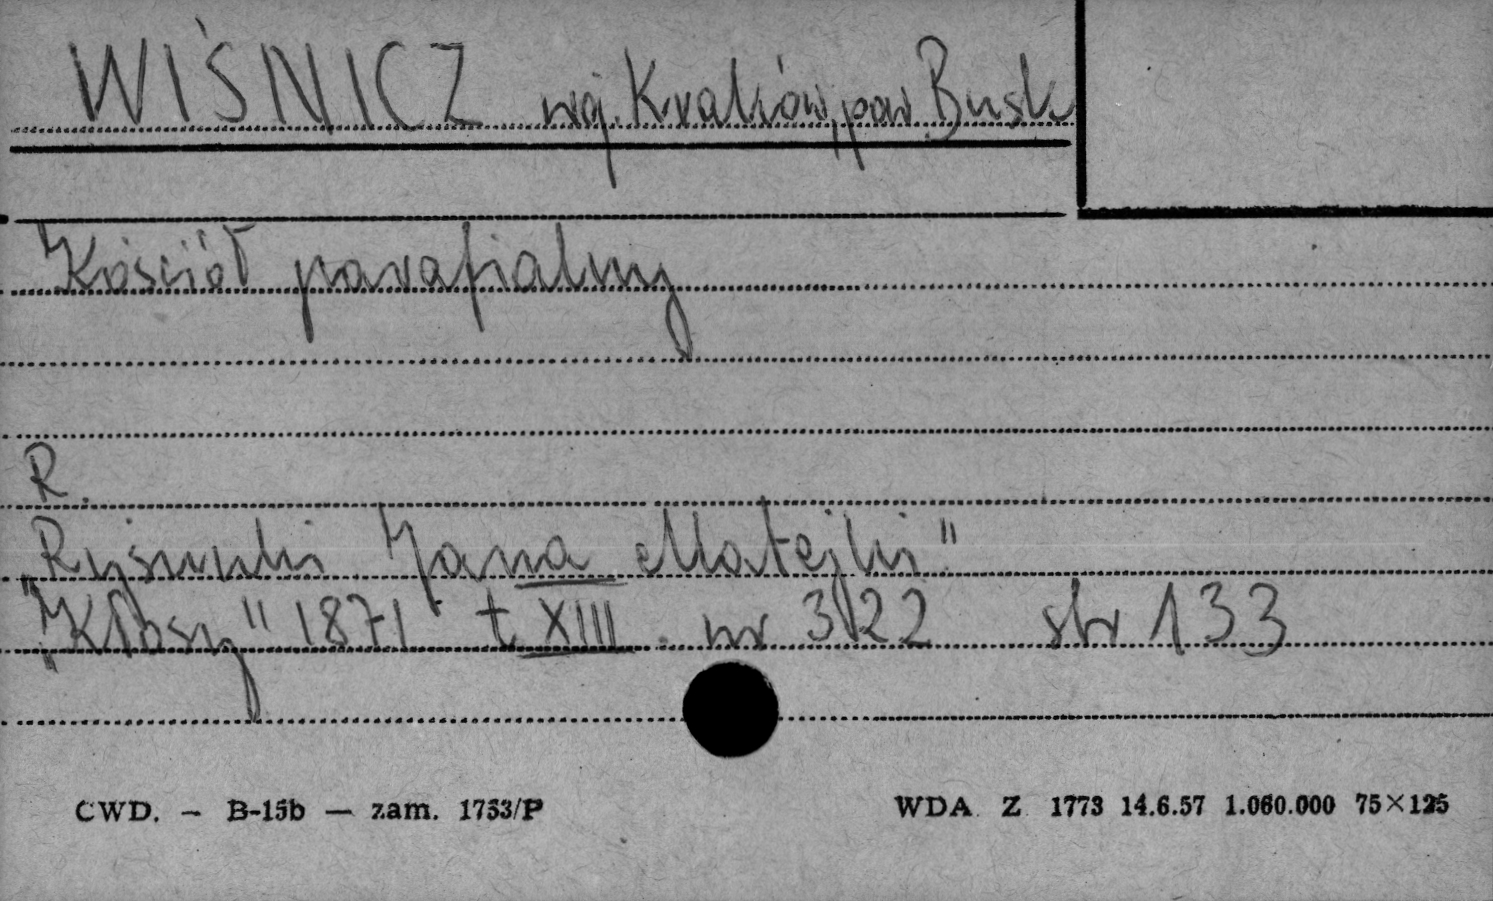 WIŚNICZ woj. Kraków, pow. Busk
Kościół parafialny
R.
"Rysunki Jana Matejki"
"Kłosy" 1871 t XIII. nr 322 str 133
CWD. – B-15b — zam. 1753/P
WDA Z 1773 14.6.57 1.060.000 75×125